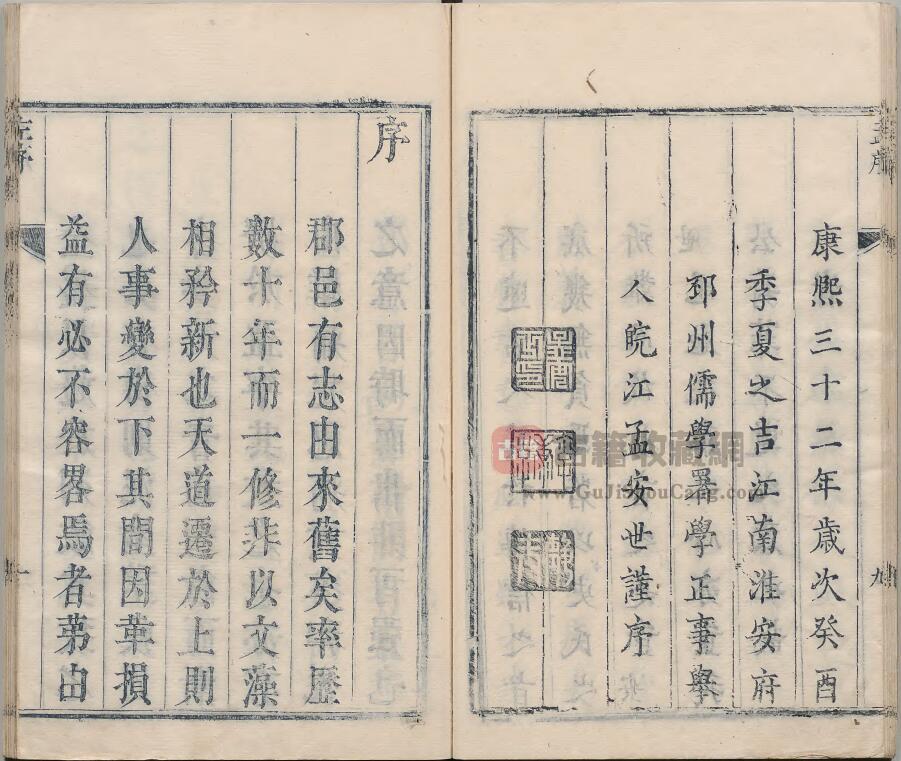 康熙三十二年歲次癸酉
季夏之吉江南淮安府
邳州儒學署學正事舉
人皖江孟安世謹序
孟序
九
序
郡邑有志由來舊矣率歷
數十年而一修非以文藻
相矜新也天道遷於上則
人事變於下其間因革損
益有必不容畧焉者苐由
一
古籍收藏網
www.GuJiShouCang.com